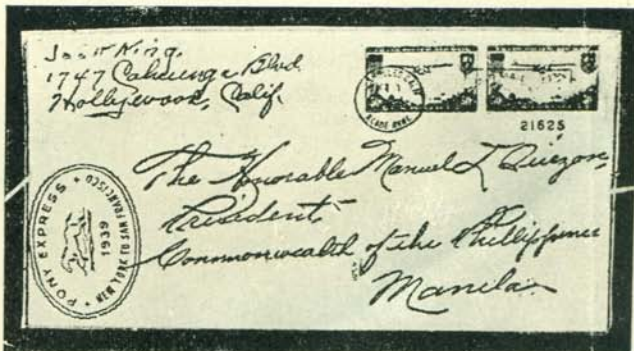 King.
1747 Cahuenga Blvd.
Hollywood, Calif.
21625
The Honorable Manuel L Quezon,
President
Commonwealth of the Phillippines
Manila
PONY EXPRESS
NEW YORK TO SAN FRANCISCO
1939